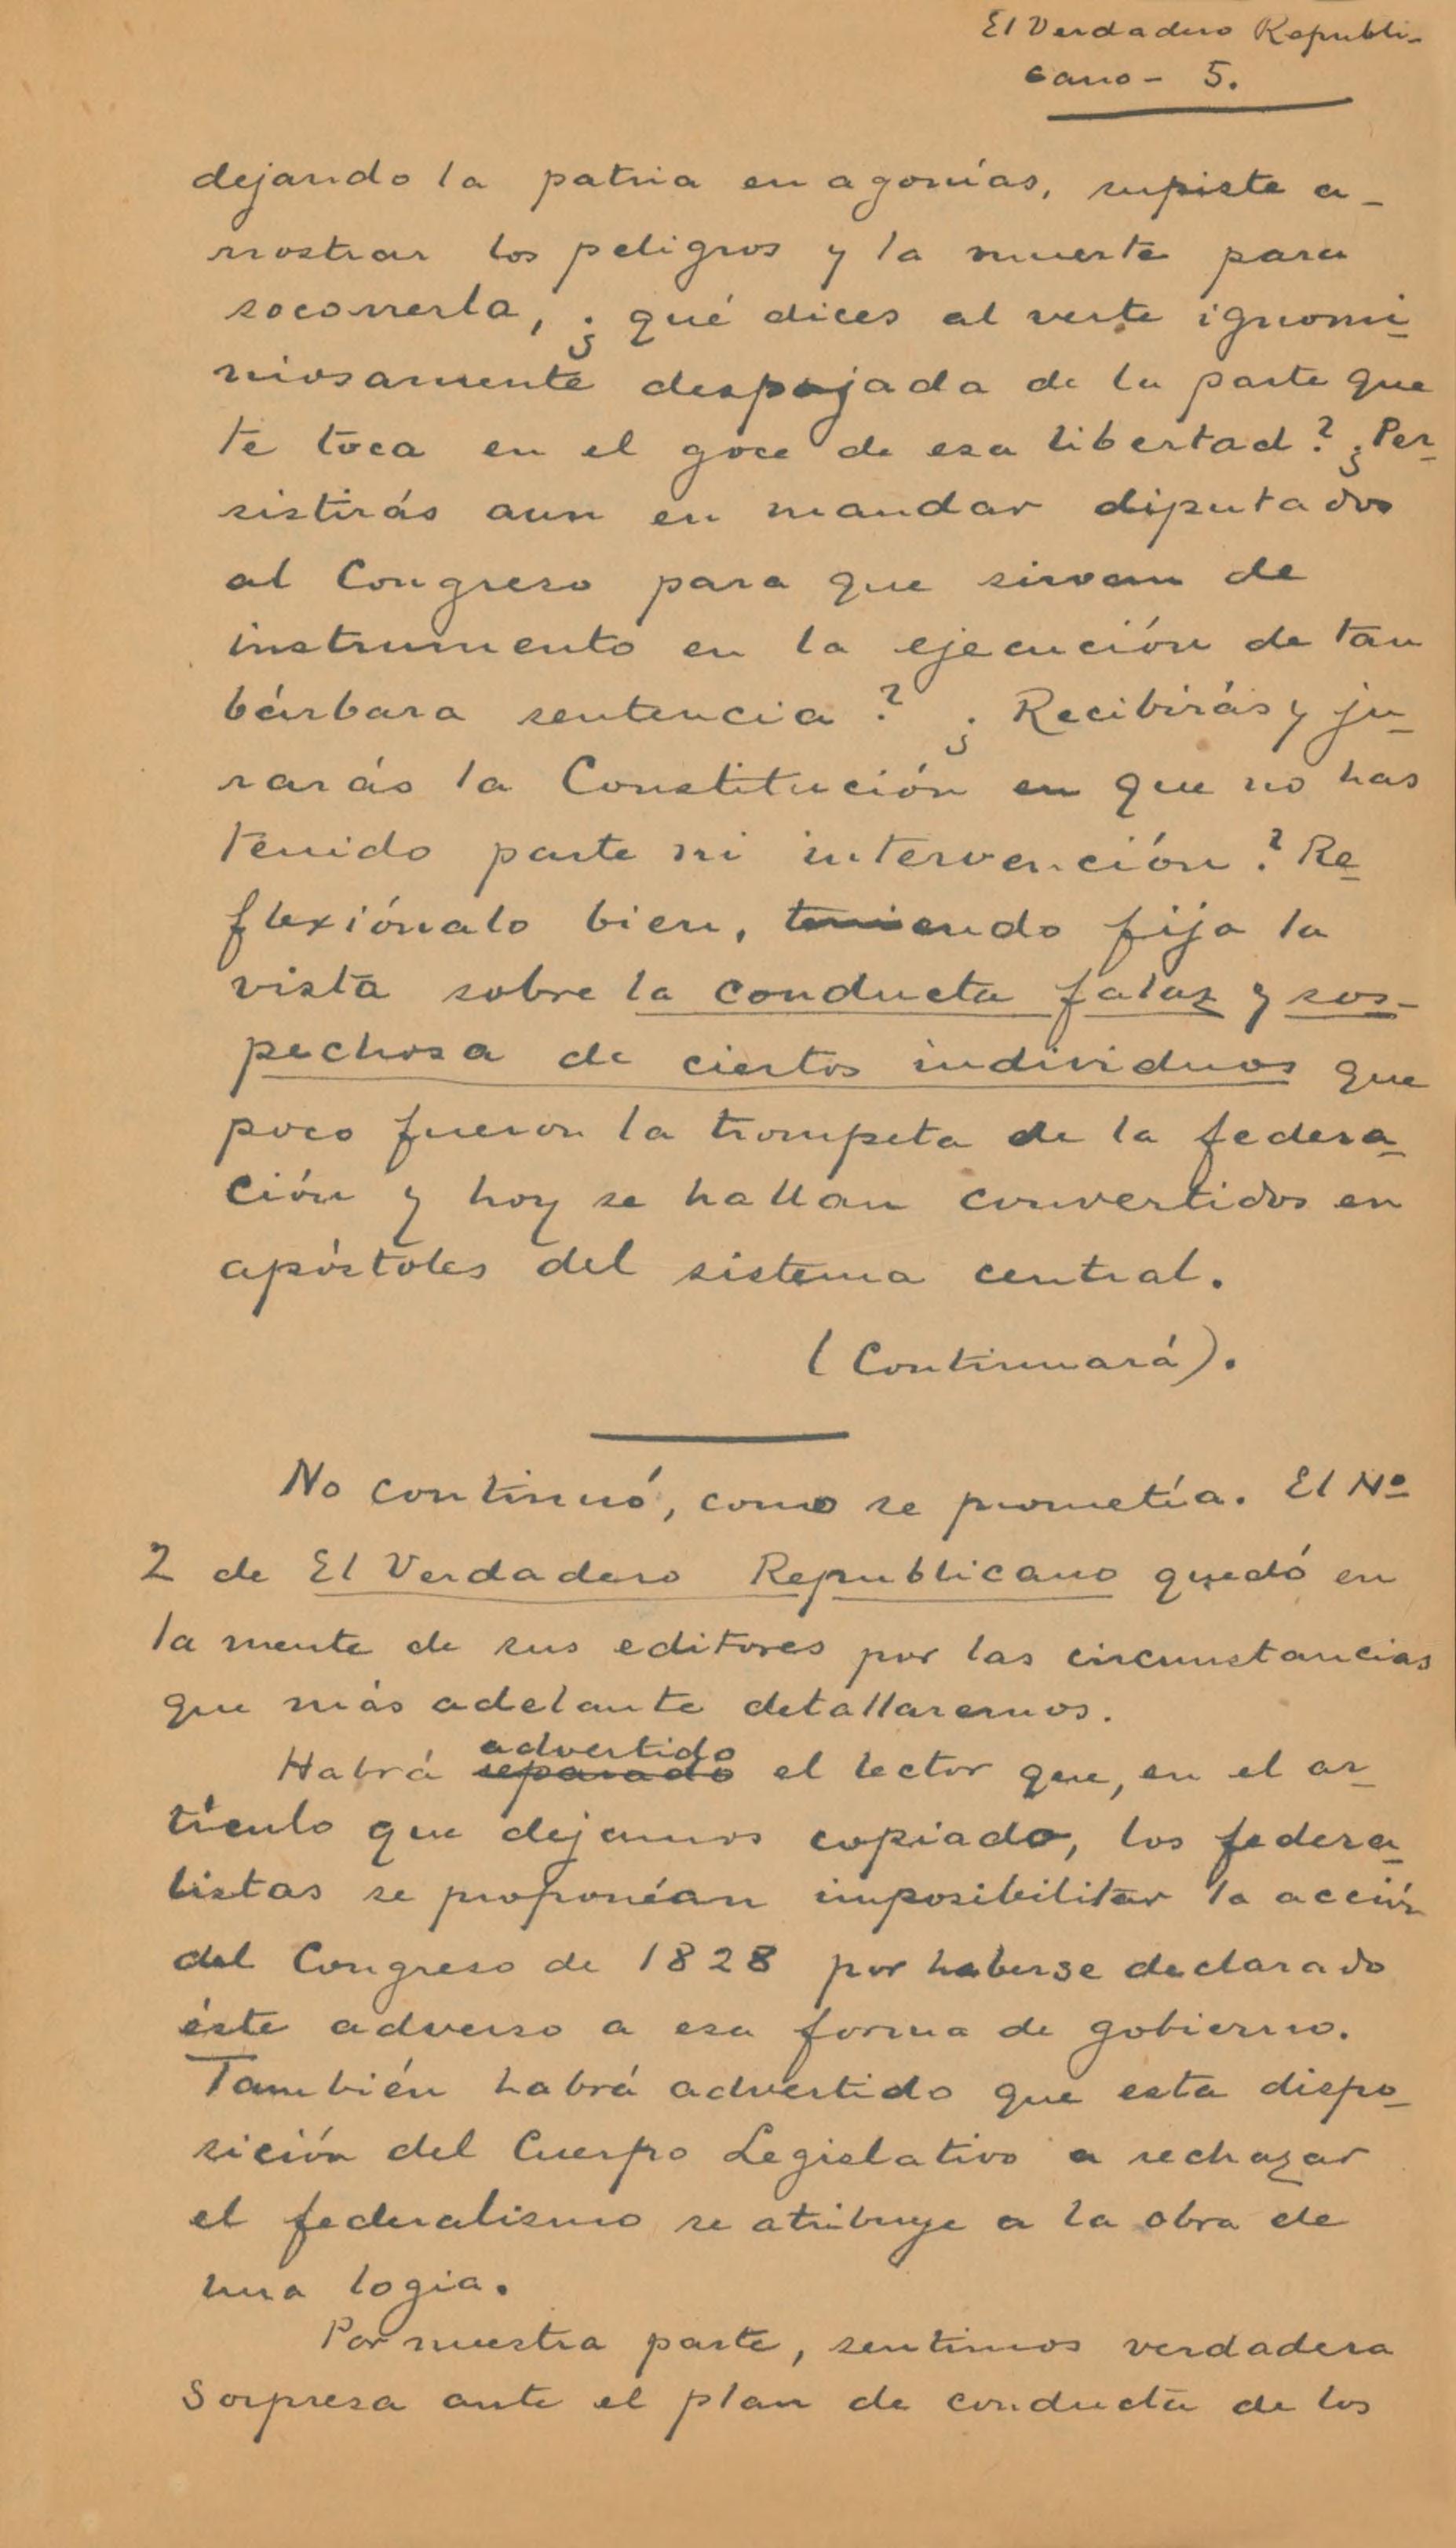 El Verdadero Republi-
cano - 5.
dejando la patria en agonías, supiste a-
rrostrar los peligros y la muerte para
socorrerla, ¿qué dices al verte ignomi-
niosamente despojada de la parte que
te toca en el goce de esa libertad? ¿Per-
sistirás aun en mandar diputados
al Congreso para que sirvan de
instrumento en la ejecución de tan
bárbara sentencia? ¿Recibirás y ju-
rarás la Constitución en que no has
tenido parte ni intervención? Re-
flexiónalo bien, teniendo fija la
vista sobre la conducta falaz y sos-
pechosa de ciertos individuos que
poco fueron la trompeta de la federa-
ción y hoy se hallan convertidos en
apóstoles del sistema central.
(Continuará).
No continuó, como se prometía. El Nº
2 de El Verdadero Republicano quedó en
la mente de sus editores por las circunstancias
que más adelante detallaremos.
advertido
Habrá separado el lector que, en el ar-
tículo que dejamos copiado, los federa-
listas se proponían imposibilitar la acción
del Congreso de 1828 por haberse declarado
éste adverso a esa forma de gobierno.
También habrá advertido que esta dispo-
sición del Cuerpo Legislativo a rechazar
el federalismo se atribuye a la obra de
una logia.
Por nuestra parte, sentimos verdadera
sorpresa ante el plan de conducta de los